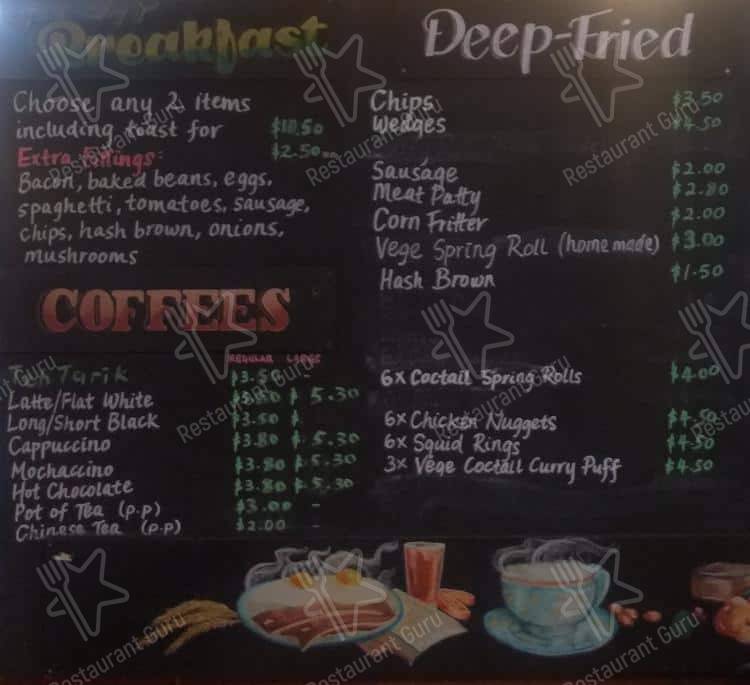 Breakfast
Choose any 2 items
including toast for $10.50
Extra Fillings: $2.50
Bacon, baked beans, eggs,
spaghetti, tomatoes, sausage,
chips, hash brown, onions,
mushrooms
COFFEES
REGULAR LARGE
Teh Tarik $3.50 -
Latte/Flat White $3.80 $5.30
Long/Short Black $3.50 $
Cappuccino $3.80 $5.30
Mochaccino $3.80 $5.30
Hot Chocolate $3.80 $5.30
Pot of Tea (p.p) $3.00 -
Chinese Tea (p.p) $2.00 -
Deep-Fried
Chips $3.50
Wedges $4.50
Sausage $2.00
Meat Patty $2.80
Corn Fritter $2.00
Vege Spring Roll (home made) $3.00
Hash Brown $1.50
6x Coctail Spring Rolls $4.00
6x Chicken Nuggets $4.50
6x Squid Rings $4.50
3x Vege Coctail Curry Puff $4.50
Restaurant Guru
Restaurant Guru
Restaurant Guru
Restaurant Guru
Restaurant Guru
Restaurant Guru
Restaurant Guru
Restaurant Guru
Restaurant Guru